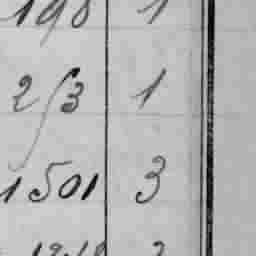 198 1
253 1
1501 3